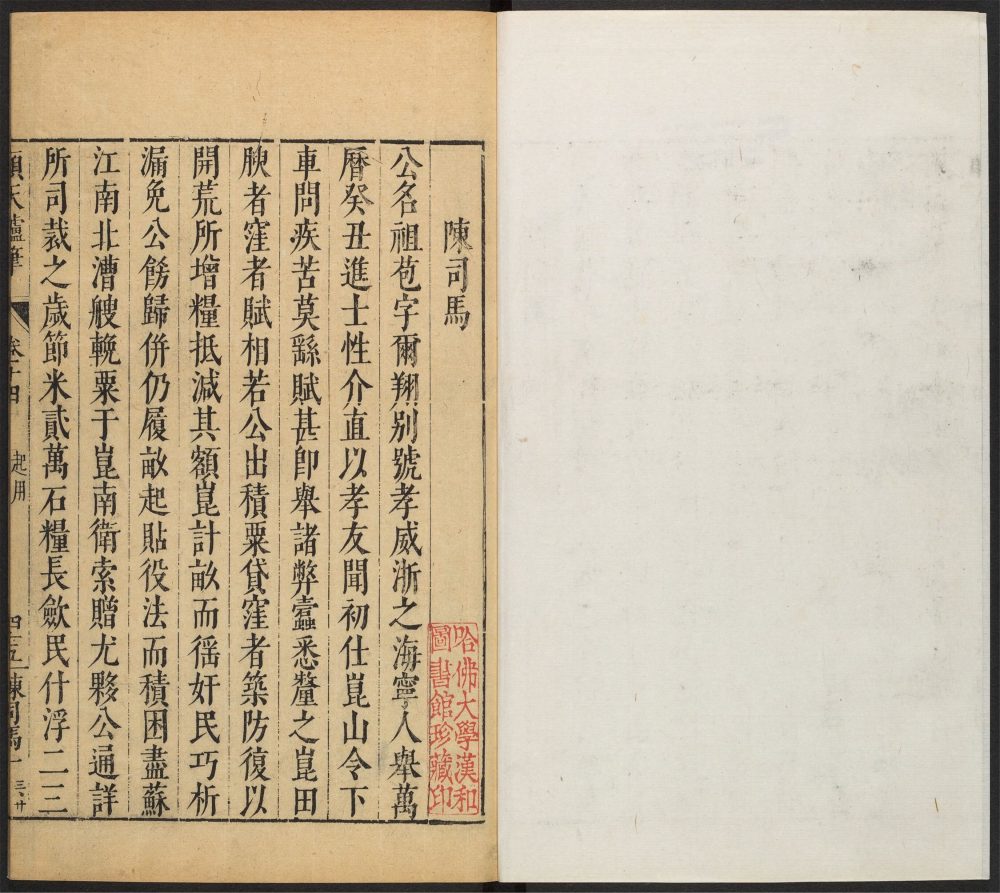 陳司馬
公名祖苞字爾翔別號孝威浙之海寧人舉萬
曆癸丑進士性介直以孝友聞初仕崑山令下
車問疾苦莫繇賦甚卽舉諸弊蠧悉釐之崑田
腴者窪者賦相若公出積粟貸窪者築防復以
開荒所增糧抵減其額崑計畝而徭奸民巧析
漏免公餝歸併仍履畝起貼役法而積困盡蘇
江南北漕艘輓粟于崑南衛索贈尤夥公通詳
所司裁之歲節米貳萬石糧長歛民什浮二三
頌天臚筆
卷十四
起用
四五
陳司馬一
三廿
哈佛大學漢和
圖書館珍藏印